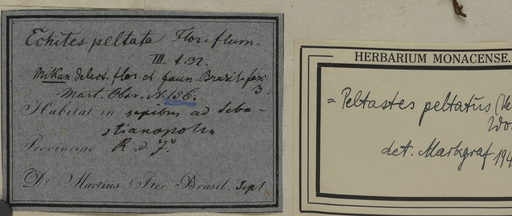 Echites peltata Flor. flum.
III. t. 32.
Mikan delect. flor. et faun. Brasil. fasc. 3.
Mart. Obs. N. 156.
Habitat in sepibus ad Seba-
stianopolin
Provinciae R. d. J.
Dr. Martius Iter Brasil. Sept.
HERBARIUM MONACENSE.
= Peltastes peltatus (Ve
Woo
det. Markgraf 194